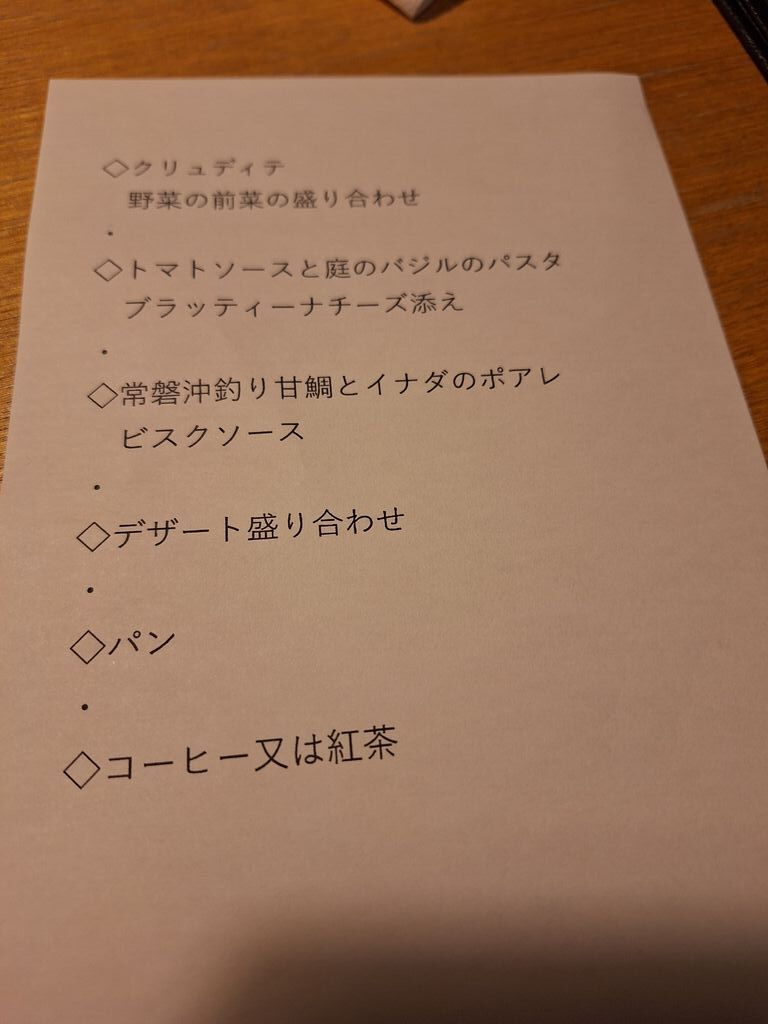 ◇クリュディテ
野菜の前菜の盛り合わせ
・
◇トマトソースと庭のバジルのパスタ
ブラッティーナチーズ添え
・
◇常磐沖釣り甘鯛とイナダのポアレ
ビスクソース
・
◇デザート盛り合わせ
・
◇パン
・
◇コーヒー又は紅茶